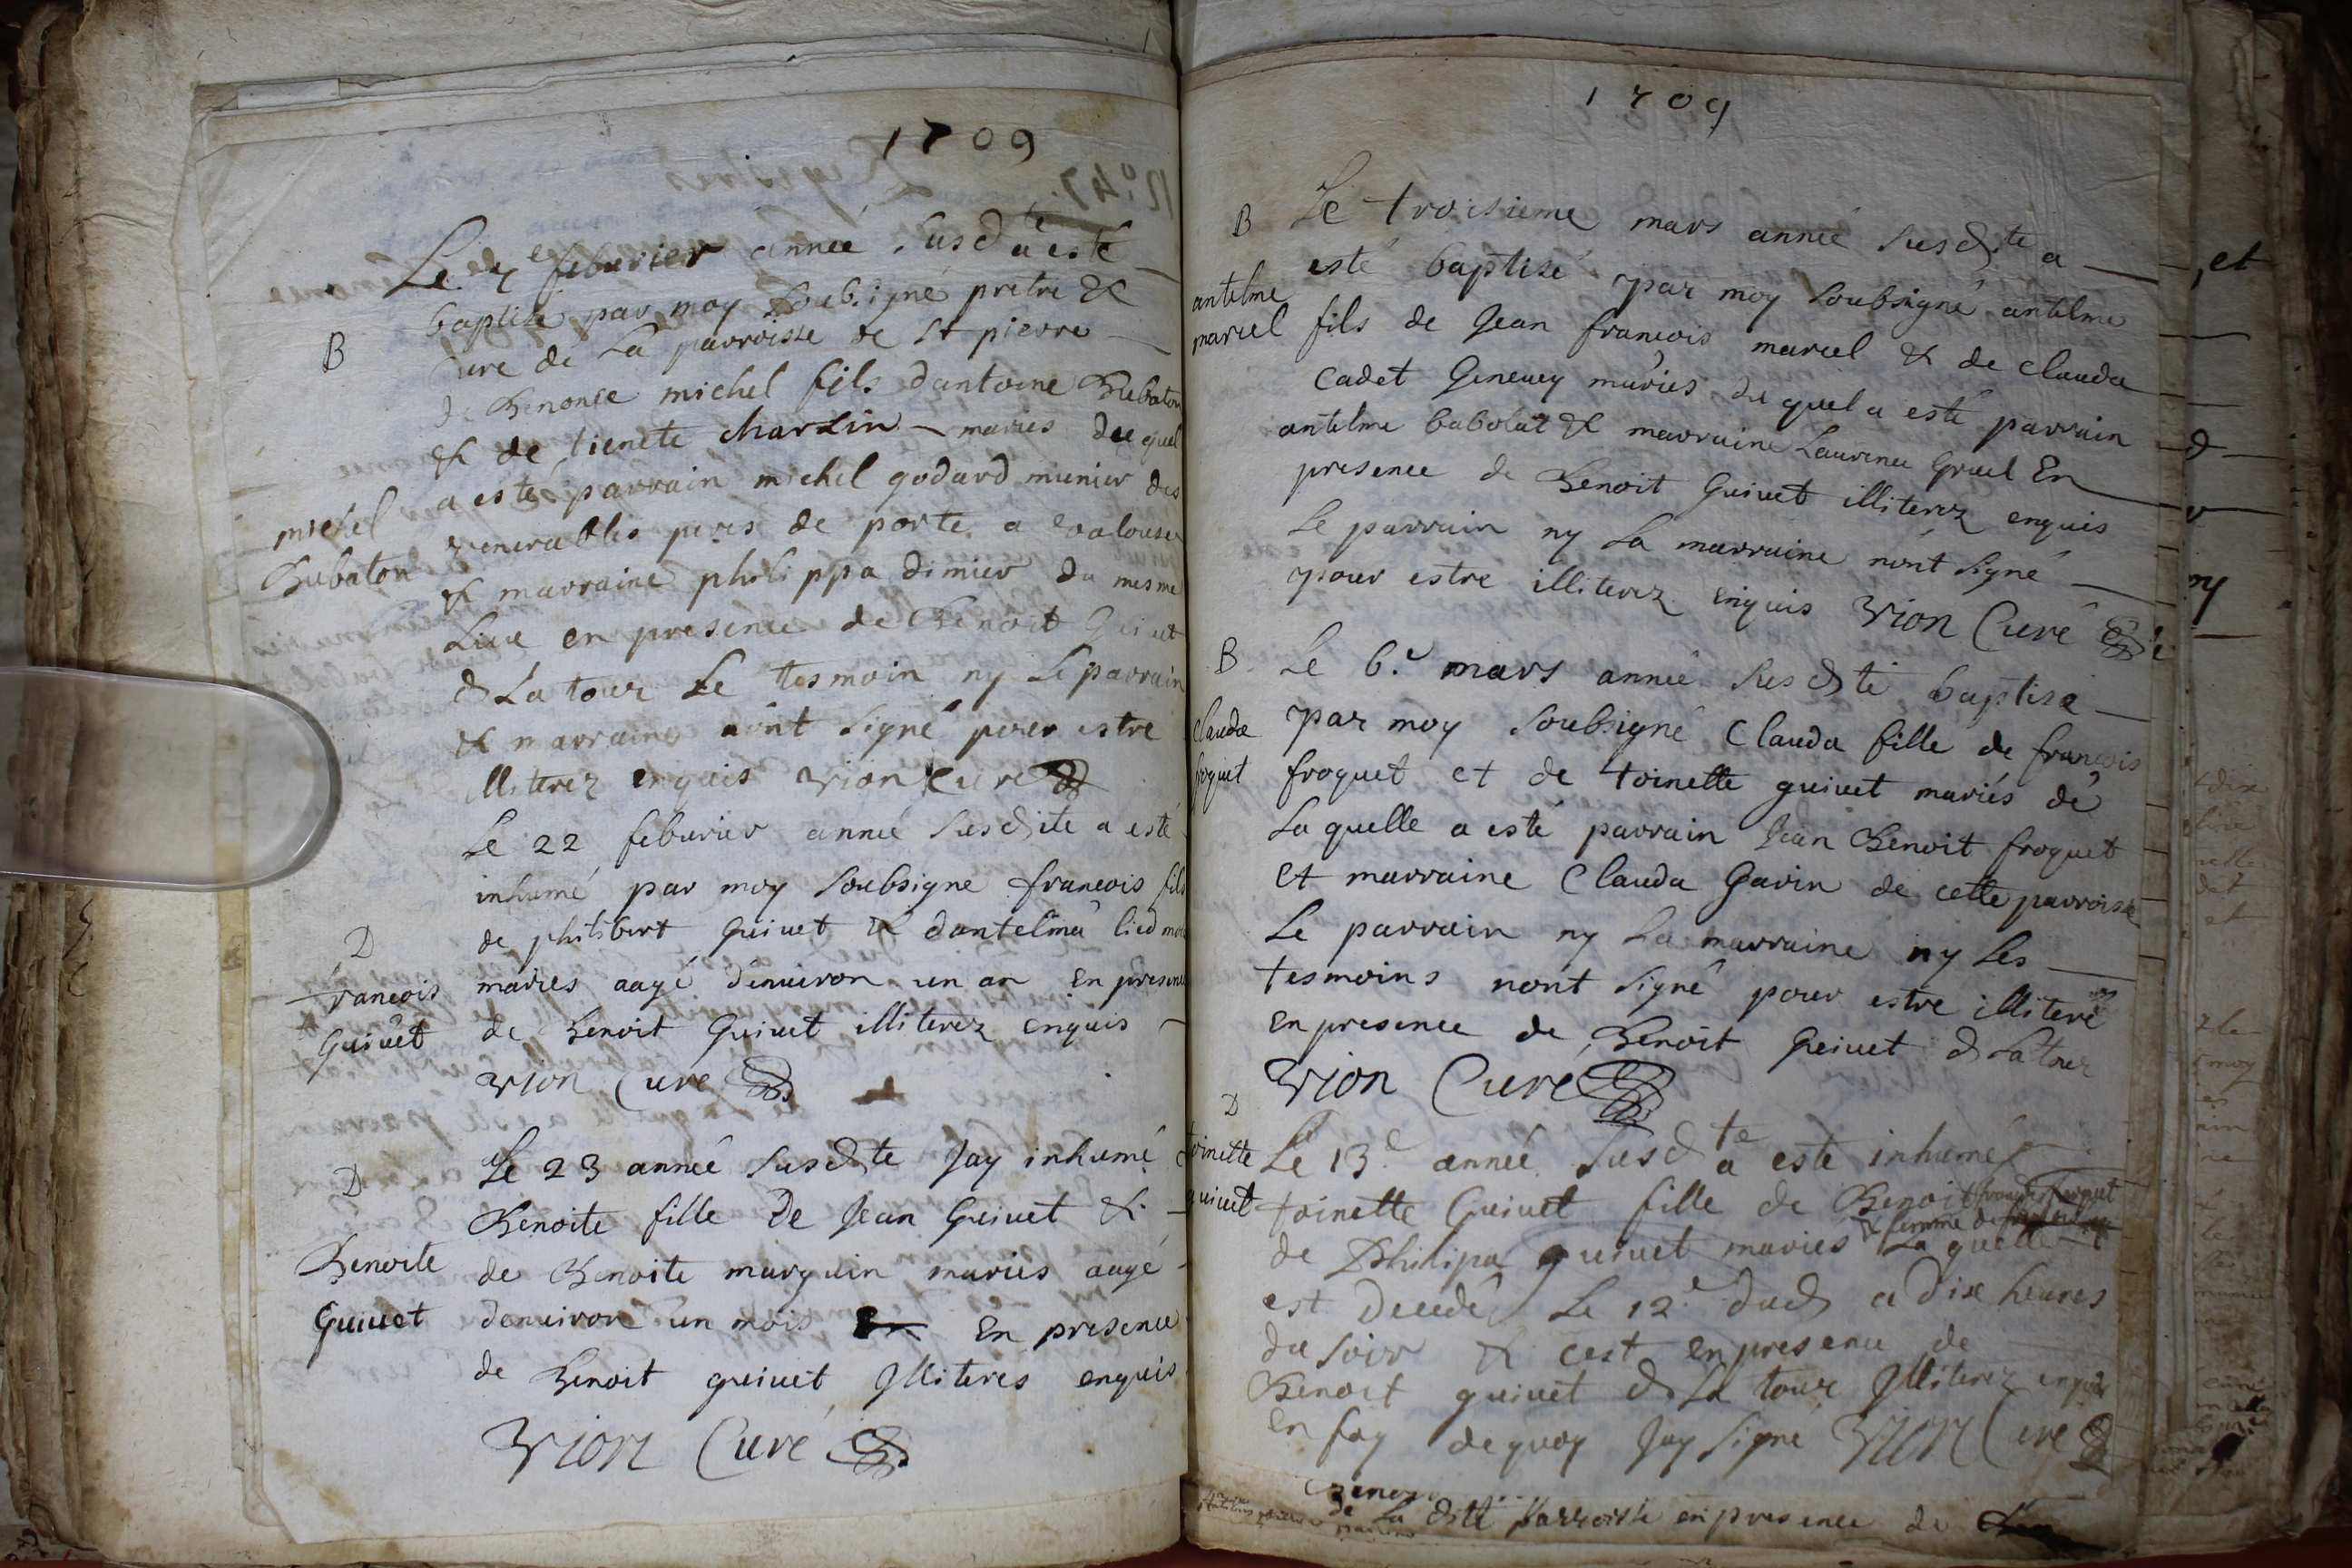 1709
Le 7e feburier année susdte a esté
baptisé par moy soubsigné pretre &
B
curé de la parroisse de st pierre
de Benonce michel fils dantoine Bubaton
& de tienete charlin maries du quel
a esté parrain michel godard munier des
michel
venerables peres de porte a
Bubaton
& marraine philippa dimier du mesme
Lieu en presence de Benoit Guiuet
d La tour Le tesmoin ny Le parrain
& marraine nont signé pour estre
illiterez enquis Vion Curé
Le 22 feburier année susdite a esté
inhumé par moy soubsigne francois fils
de philibert Guiuet & dantelma
D
francois
Guiuet
maries aagé denuiron un an En presence
de Benoit Guiuet illiterez enquis
Vion Curé
D
Le 23 année susdte Jay inhumé
Benoite fille De Jean Guiuet &
Benoite
de Benoite marquin mariés aagé
Guiuet
denuiron un mois En presence
de Benoit guiuet Illiteres enquis
Vion Curé
1709
B
Le troisieme mars année susdte a
esté baptisé par moy soubsigné antelme
antelme
marcel
fils de Jean francois marcel & de clauda
cadet Geneuey mariés du quel a esté parrain
antelme babolat & marraine Laurence Gruel En
presence de Benoit Guiuet illiterez enquis
Le parrain ny La marraine nont signé
pour estre illiterez enquis Vion Curé
B
Le 6e mars année susdte baptisé
par moy soubsigné Clauda fille de francois
clauda
froquet
froquet et de toinette guiuet mariés de
La quelle a esté parrain Jean Benoit froquet
et marraine Clauda Gavin de cette parroisse
Le parrain ny La marraine ny Les
tesmoins nont signé pour estre illiteré
en presence de Benoit Guiuet d La tour
Vion Curé
D
toinette
guiuet
Le 13e année susdte a esté inhumé
toinette Guiuet fille de Benoit
& femme de francois froquet
de Philipa guiuet mariés La quelle
est decedé Le 12e dud a Dix heures
du soir & cest en presence de
Benoit guiuet d La tour Illiterez enquis
en foy de quoy Jay signé Vion Curé
de La ditte parroisse en presence de
, et
d
ny